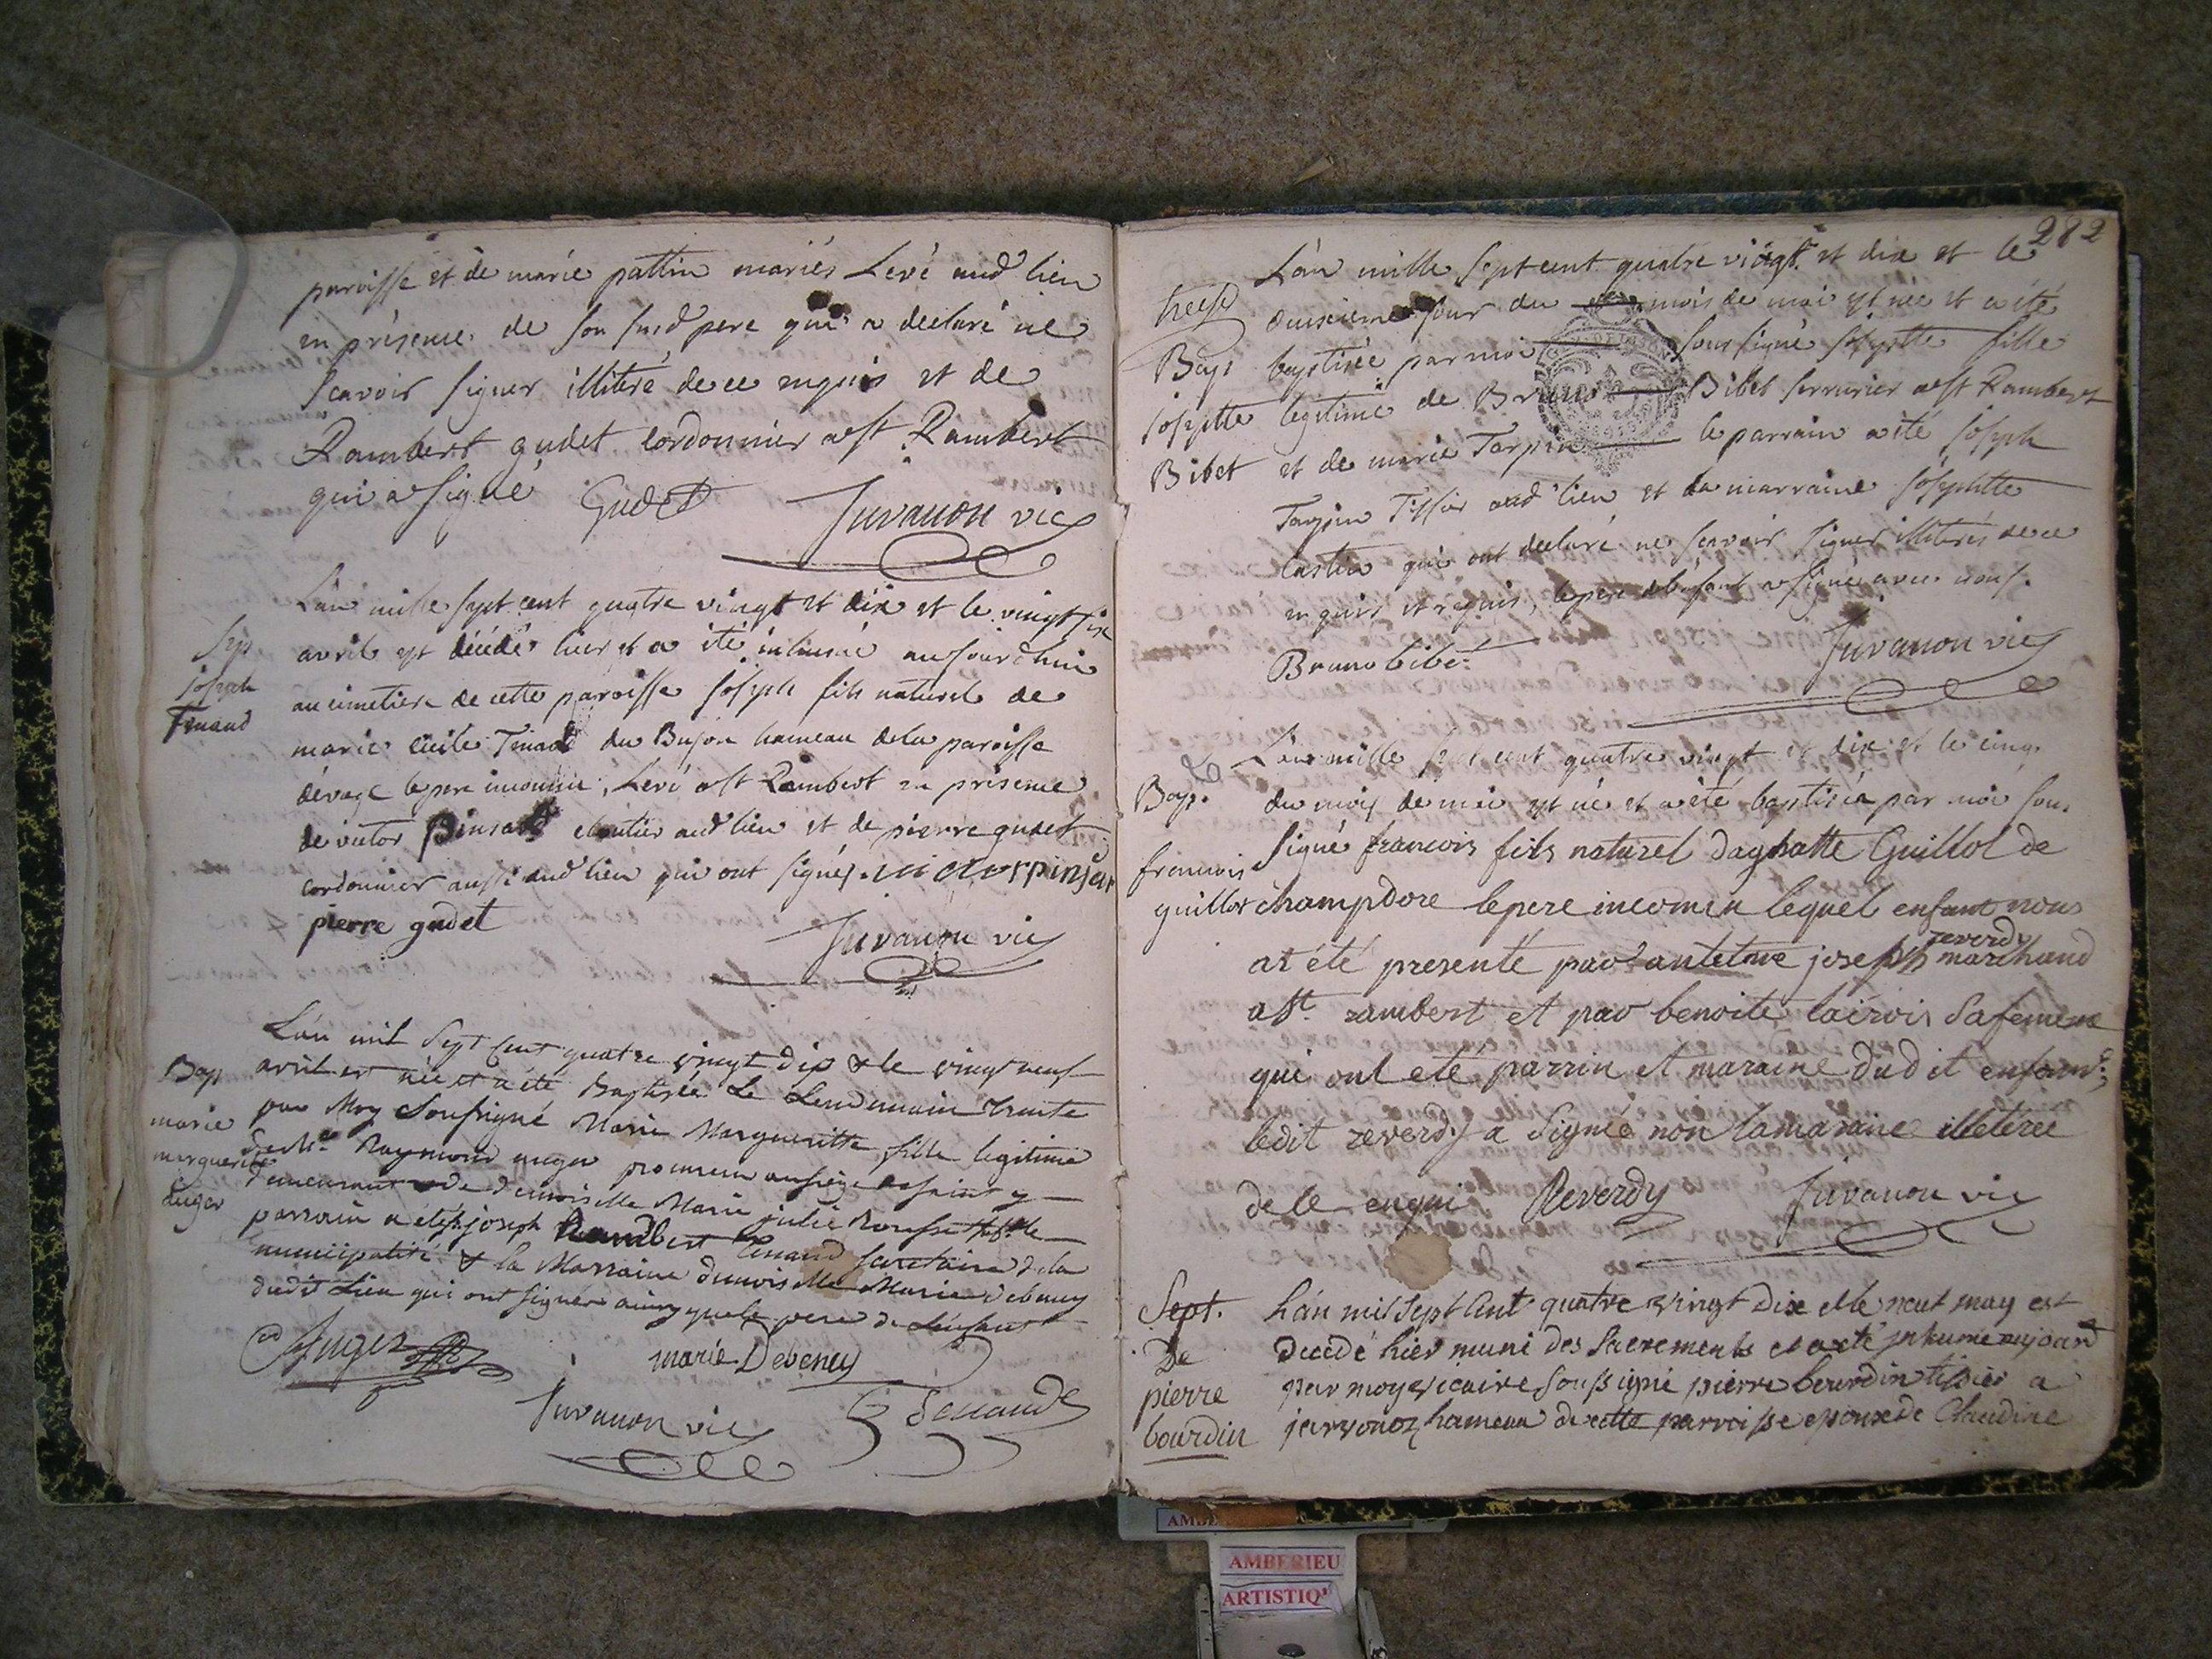 paroisse et de marie pattin mariés Levé aud lieu
en présence de son susd pere qui a declaré ne
scavoir signer illitéré de ce enquis et de
Rambert gudet cordonnier a st Rambert
qui a signé Gudet Juvanon vic
L'an mille sept cent quatre vingt et dix et le vingt six
Sep
avril est décédé hier et a été inhumé aujourdhui
joseph
au cimetiere de cette paroisse joseph fils naturel de
Tenand
marie cécile Tenand du Bujon hameau de la paroisse
le pere inconnu, Levé a st Rambert en présence
de victor Pinsard cloutier aud lieu et de pierre gudet
cordonnier aussi aud lieu qui ont signés. victor pinsar
pierre gudet
Juvanon vic
L'an mil Sept Cent quatre vingt dix & le vingt neuf
Bap
avril est née et a été Baptisée Le Lendemain trente
marie
par Moy Soussigné Marie Margueritte fille legitime
marguerite
de Mre Raymond auger procureur au siege de saint
auger
demeurant & de demoiselle Marie julie le
parrain a été joseph Rambert Tenand secretaire de la
municipalité & la Marraine demoiselle Marie debeney
dudit Lieu qui ont signer ainsy que le pere de L'enfant
Auger
marie Debeney
Juvanon vic Tenand
282
L'an mille sept cent quatre vingt et dix et le
treise
onsieme jour du mois de mai est née et a été
Bap
baptisée par moi soussigné josephtte fille
josephtte
legitime de Bruno Bibet serrurier a st Rambert
Bibet
et de marie Tarpin le parrain a été joseph
Tarpin Tissier aud lieu et la marraine josephtte
Castin qui ont declaré ne scavoir signer illiterés de ce
enquis et requis, le pere de l'enfant a signé avec nous.
Bruno bibet Juvanon vic
L'an mille sept cent quatre vingt et dix et le cinq
Bap.
du mois de mai est né et a été baptisé par moi sous
francois
signé francois fils naturel daghatte Guillot de
guillot
champdore le pere inconnu lequel enfant nous
reverdy
at été presenté par antetme joseph marchand
a st. rambert et par benoite lacroix sa femme
qui ont eté parrin et maraine dudit enfant;
ledit reverdy a signé non la maraine illetérée
de ce enqui Reverdy Juvanon vic
Sept.
L'an mil sept Cent quatre vingt Dix et le neuf may est
De
decedé hier muni des Sacrements et a eté inhumé aujourd
pierre
par moy vicaire soussigné pierre bourdin tissier a
bourdin
javornoz hameau de cette parroisse epoux de Claudine
AMBERIEU
ARTISTIQ'